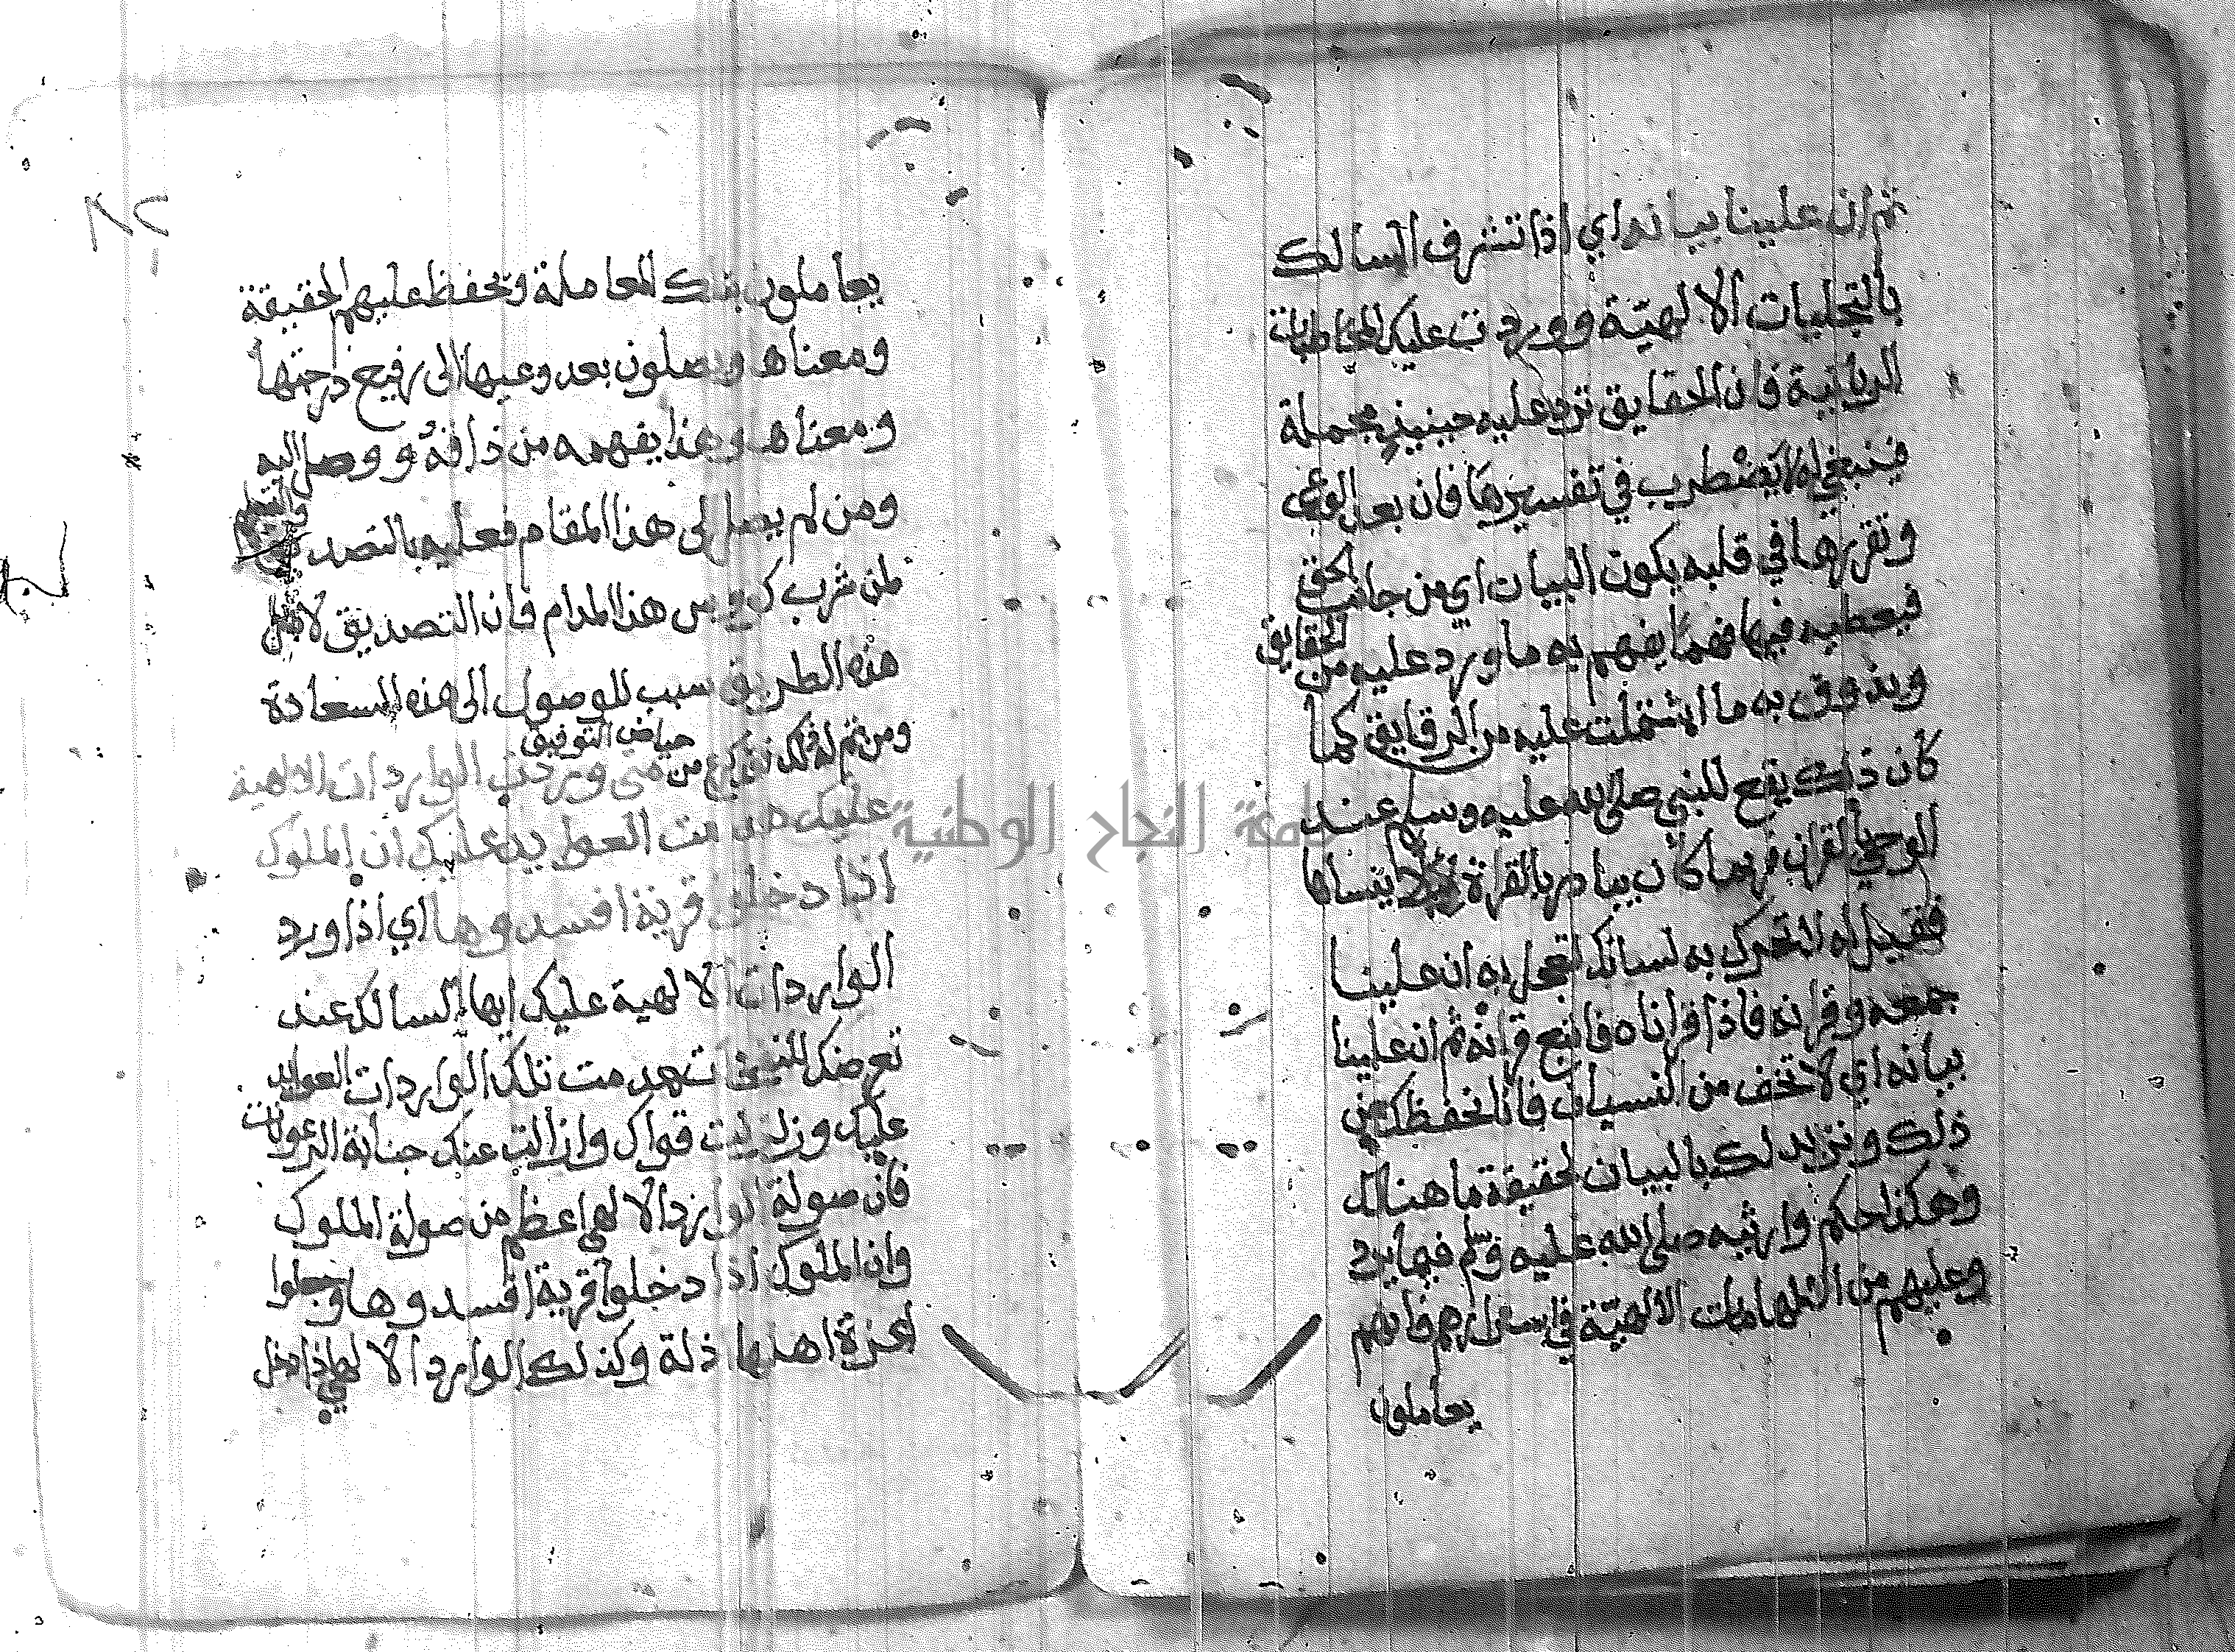 ثم ان علينا بيانه اي اذا تشرف السالك
بالتجليات الالهيّة ووردت عليك المخاطبات
الربانية فان الحقايق ترد عليه حينيذٍ مجملة
فينبغي له لا يضطرب في تفسيرها فان بعد الوعي
وتقررها في قلبه يكون البيان اي من جانب الحق
فيعطيه فيها فهمًا يفهم به ما ورد عليه من الحقايق
ويذوق به ما اشتملت عليه من الرقايق كما
كان ذلك يقع للنبي صلى الله عليه وسلم عند
الوحي بالقران فربما كان يبادر بالقراة ليلا ينساها
فقيل له لا تحرك به لسانك لتعجل به ان علينا
جمعه وقرانه فاذا قراناه فاتبع قرانه ثم ان علينا
بيانه اي لا تخف من النسيان فانا نحفظك من
ذلك ونزيد لك بالبيان لحقيقة ما هنالك
وهكذا حكم وارثيه صلى الله عليه وسلم فيما يرد
وعليهم من الالهامات الالهيّة في اسرارهم فانهم
يعاملون
٨٢
يعاملون بتلك المعاملة وتحفظ عليهم الحقيقة
ومعناها ويصلون بعد وعيها الى رفيع درجتها
ومعناها وهذا يفهمه من ذاقه ووصل اليه
ومن لم يصل الى هذا المقام فعليه بالتصديق والتسليم
لمن شرب كووس هذا المدام فان التصديق لاهل
هذه الطريق سبب للوصول الى هذه السعادة
ومن تم له ذلك فقد كرع من حياض التوفيق
متى وردت الواردات الالهية
عليك هدمت العوايد عليك ان الملوك
اذا دخلوا قرية افسدوها اي اذا ورد
الواردات الالهية عليك ايها السالك عند
تعرضك للنفحات هدمت تلك الواردات العوايد
عليك وزلزلت قواك وازالت عنك جنابة الرعونات
فان صولة الوارد الالهي اعظم من صولة الملوك
وان الملوك اذا دخلوا قرية افسدوها وجعلوا
اعزة اهلها اذلة وكذلك الوارد الالهي اذا دخل
جامعة النجاح الوطنية